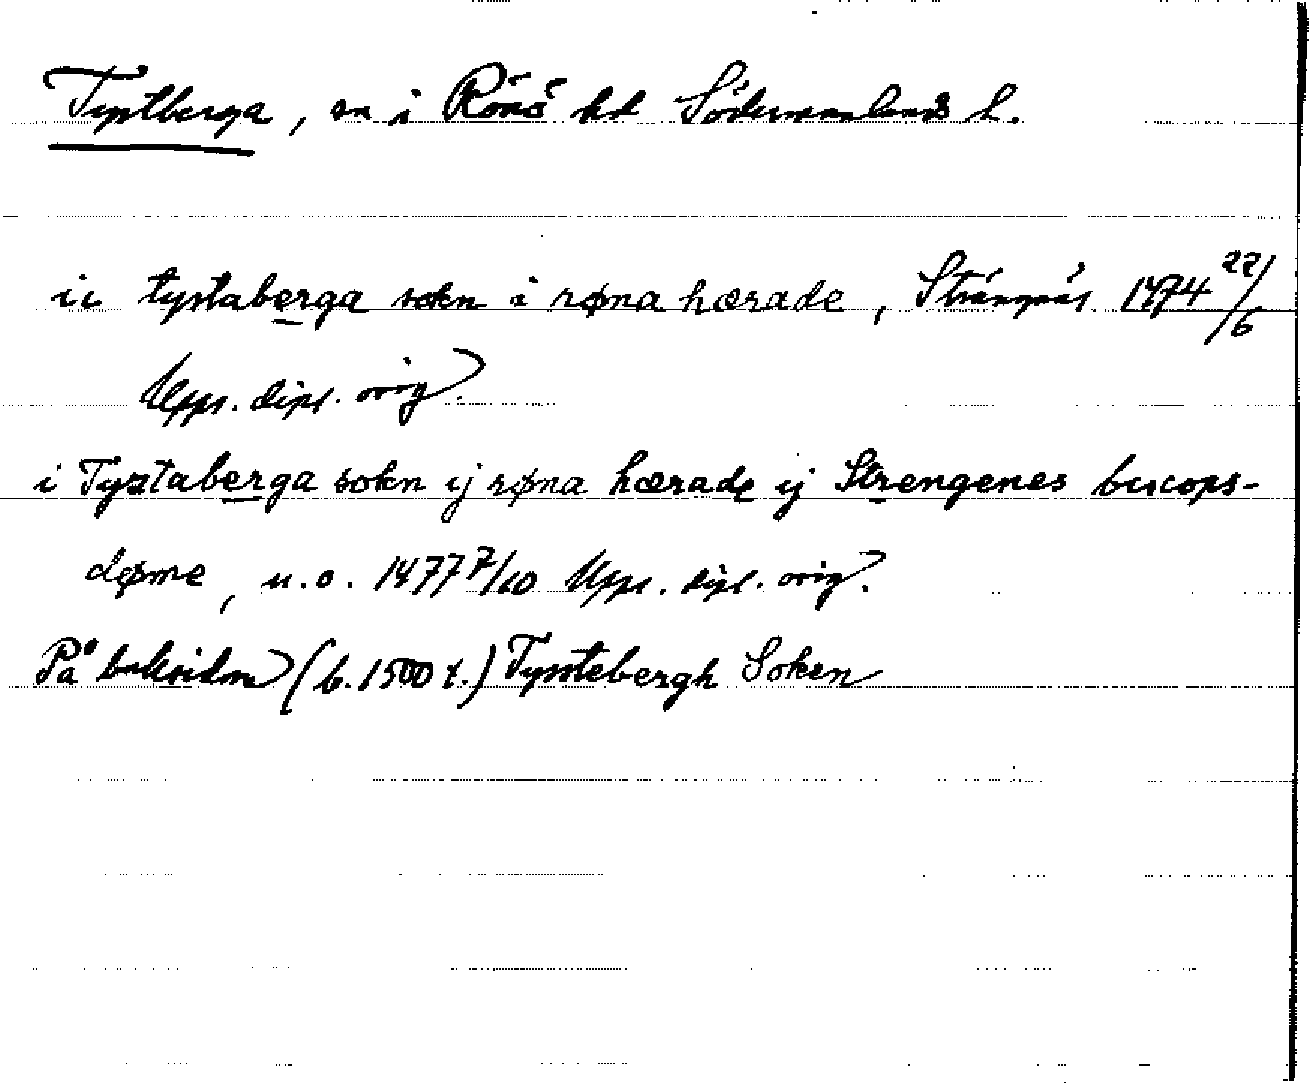 Tystberga, sn i Rönö hd Södermanlands l.
i c tystaberga sokn i røna hærade, Strängnäs 1474 22/6
Upps. dipl. orig.
i Tystaberga sokn ij røna hærade ij Strengenes biscops-
døme, u.o. 1477 7/10 Upps. dipl. orig.
På baksidan (b. 1500 t.) Tystebergh Soken